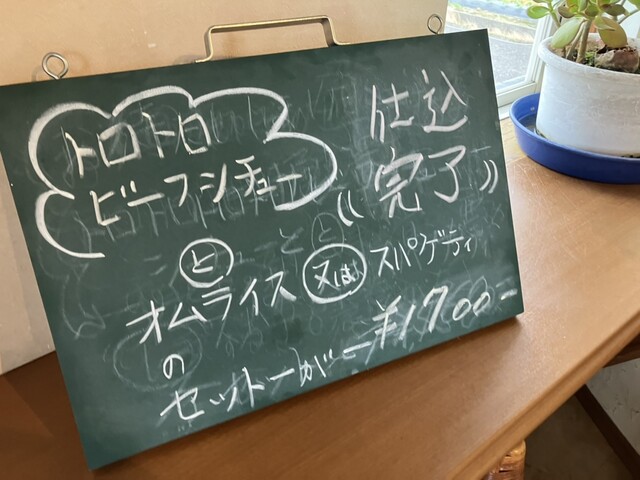 トロトロ
ビーフシチュー
仕込
完了
と
オムライス又はスパゲティ
の
セットーがー¥1700-